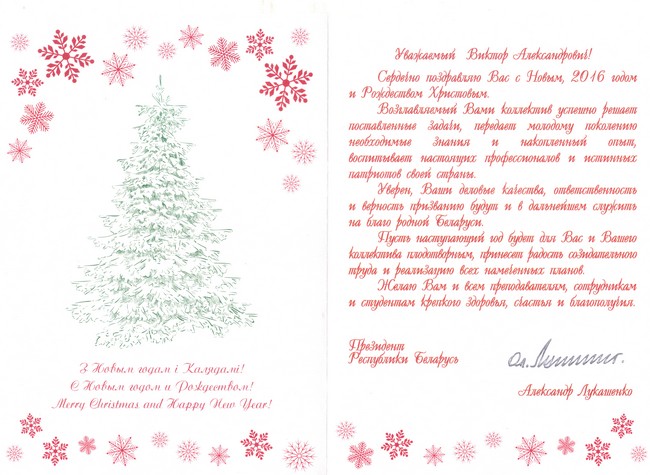 З Новым годам і Калядамі!
С Новым годом и Рождеством!
Merry Christmas and Happy New Year!
Уважаемый Виктор Александрович!
Сердечно поздравляю Вас с Новым, 2016 годом
и Рождеством Христовым.
Возглавляемый Вами коллектив успешно решает
поставленные задачи, передает молодому поколению
необходимые знания и накопленный опыт,
воспитывает настоящих профессионалов и истинных
патриотов своей страны.
Уверен, Ваши деловые качества, ответственность
и верность призванию будут и в дальнейшем служить
на благо родной Беларуси.
Пусть наступающий год будет для Вас и Вашего
коллектива плодотворным, принесет радость созидательного
труда и реализацию всех намеченных планов.
Желаю Вам и всем преподавателям, сотрудникам
и студентам крепкого здоровья, счастья и благополучия.
Президент
Республики Беларусь
Александр Лукашенко